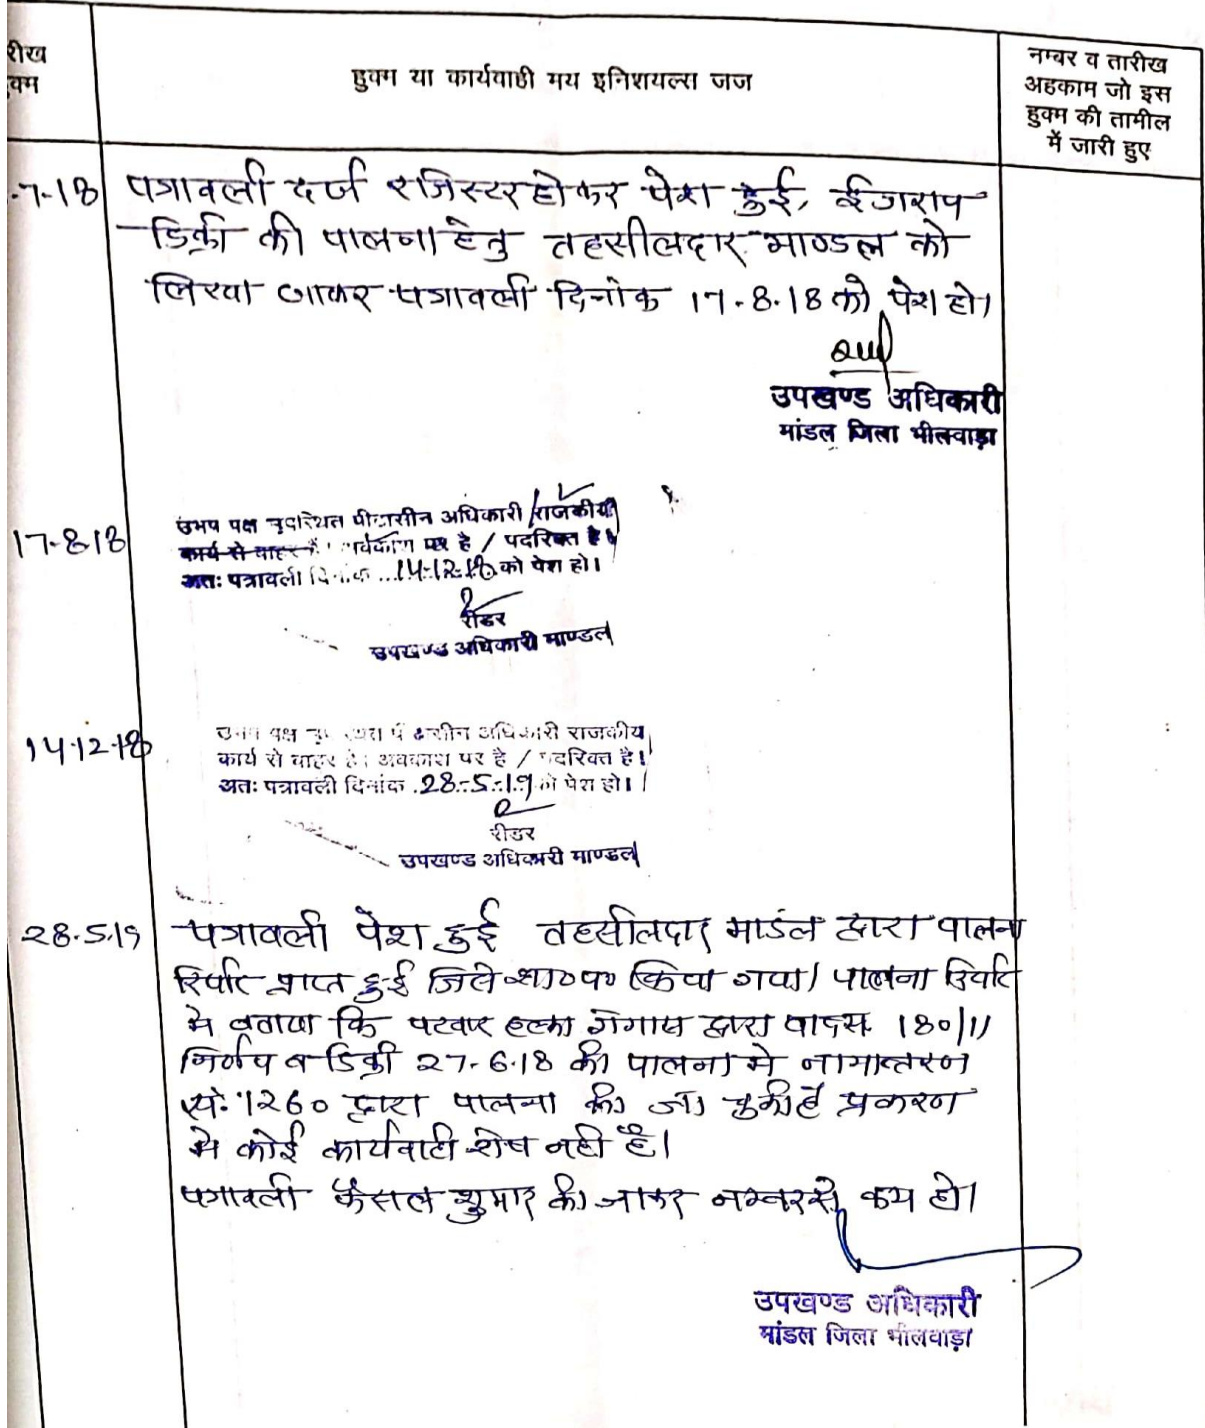 रीख
क्म
हुक्म या कार्यवाही मय इनिशयल्स जज
नम्बर व तारीख
अहकाम जो इस
हुक्म की तामील
में जारी हुए
-7-18 पत्रावली दर्ज रजिस्टर होकर पेश हुई, ईजराय
डिक्री की पालना हेतु तहसीलदार माण्डल को
लिखा जाकर पत्रावली दिनांक 17-8-18 को पेश हो।
उपखण्ड अधिकारी
मांडल जिला भीलवाड़ा
17-8-18
उभय पक्ष उपस्थित पीठासीन अधिकारी / राजकीय
कार्य से बाहर है। अवकाश पर है / पदरिक्त है।
अतः पत्रावली दिनांक ..14-12-18 को पेश हो।
रीडर
उपखण्ड अधिकारी माण्डल
14-12-18
उभय पक्ष अधिकारी राजकीय
कार्य से बाहर है। अवकाश पर है / पदरिक्त है।
अतः पत्रावली दिनांक .28-5-19 को पेश हो।
रीडर
उपखण्ड अधिकारी माण्डल
28.5.19 पत्रावली पेश हुई तहसीलदार मांडल द्वारा पालना
रिपोर्ट प्राप्त हुई जिसे शा०प० किया गया। पालना रिपोर्ट
मे बताया कि पटवार हल्का द्वारा 180/11
निर्णय व डिक्री 27-6-18 की पालना मे नामान्तरण
सं. 1260 द्वारा पालना की जा चुकी है प्रकरण
मे कोई कार्यवाही शेष नही है।
पत्रावली फैसल शुमार की जाकर नम्बर से कम हो।
उपखण्ड अधिकारी
मांडल जिला भीलवाड़ा